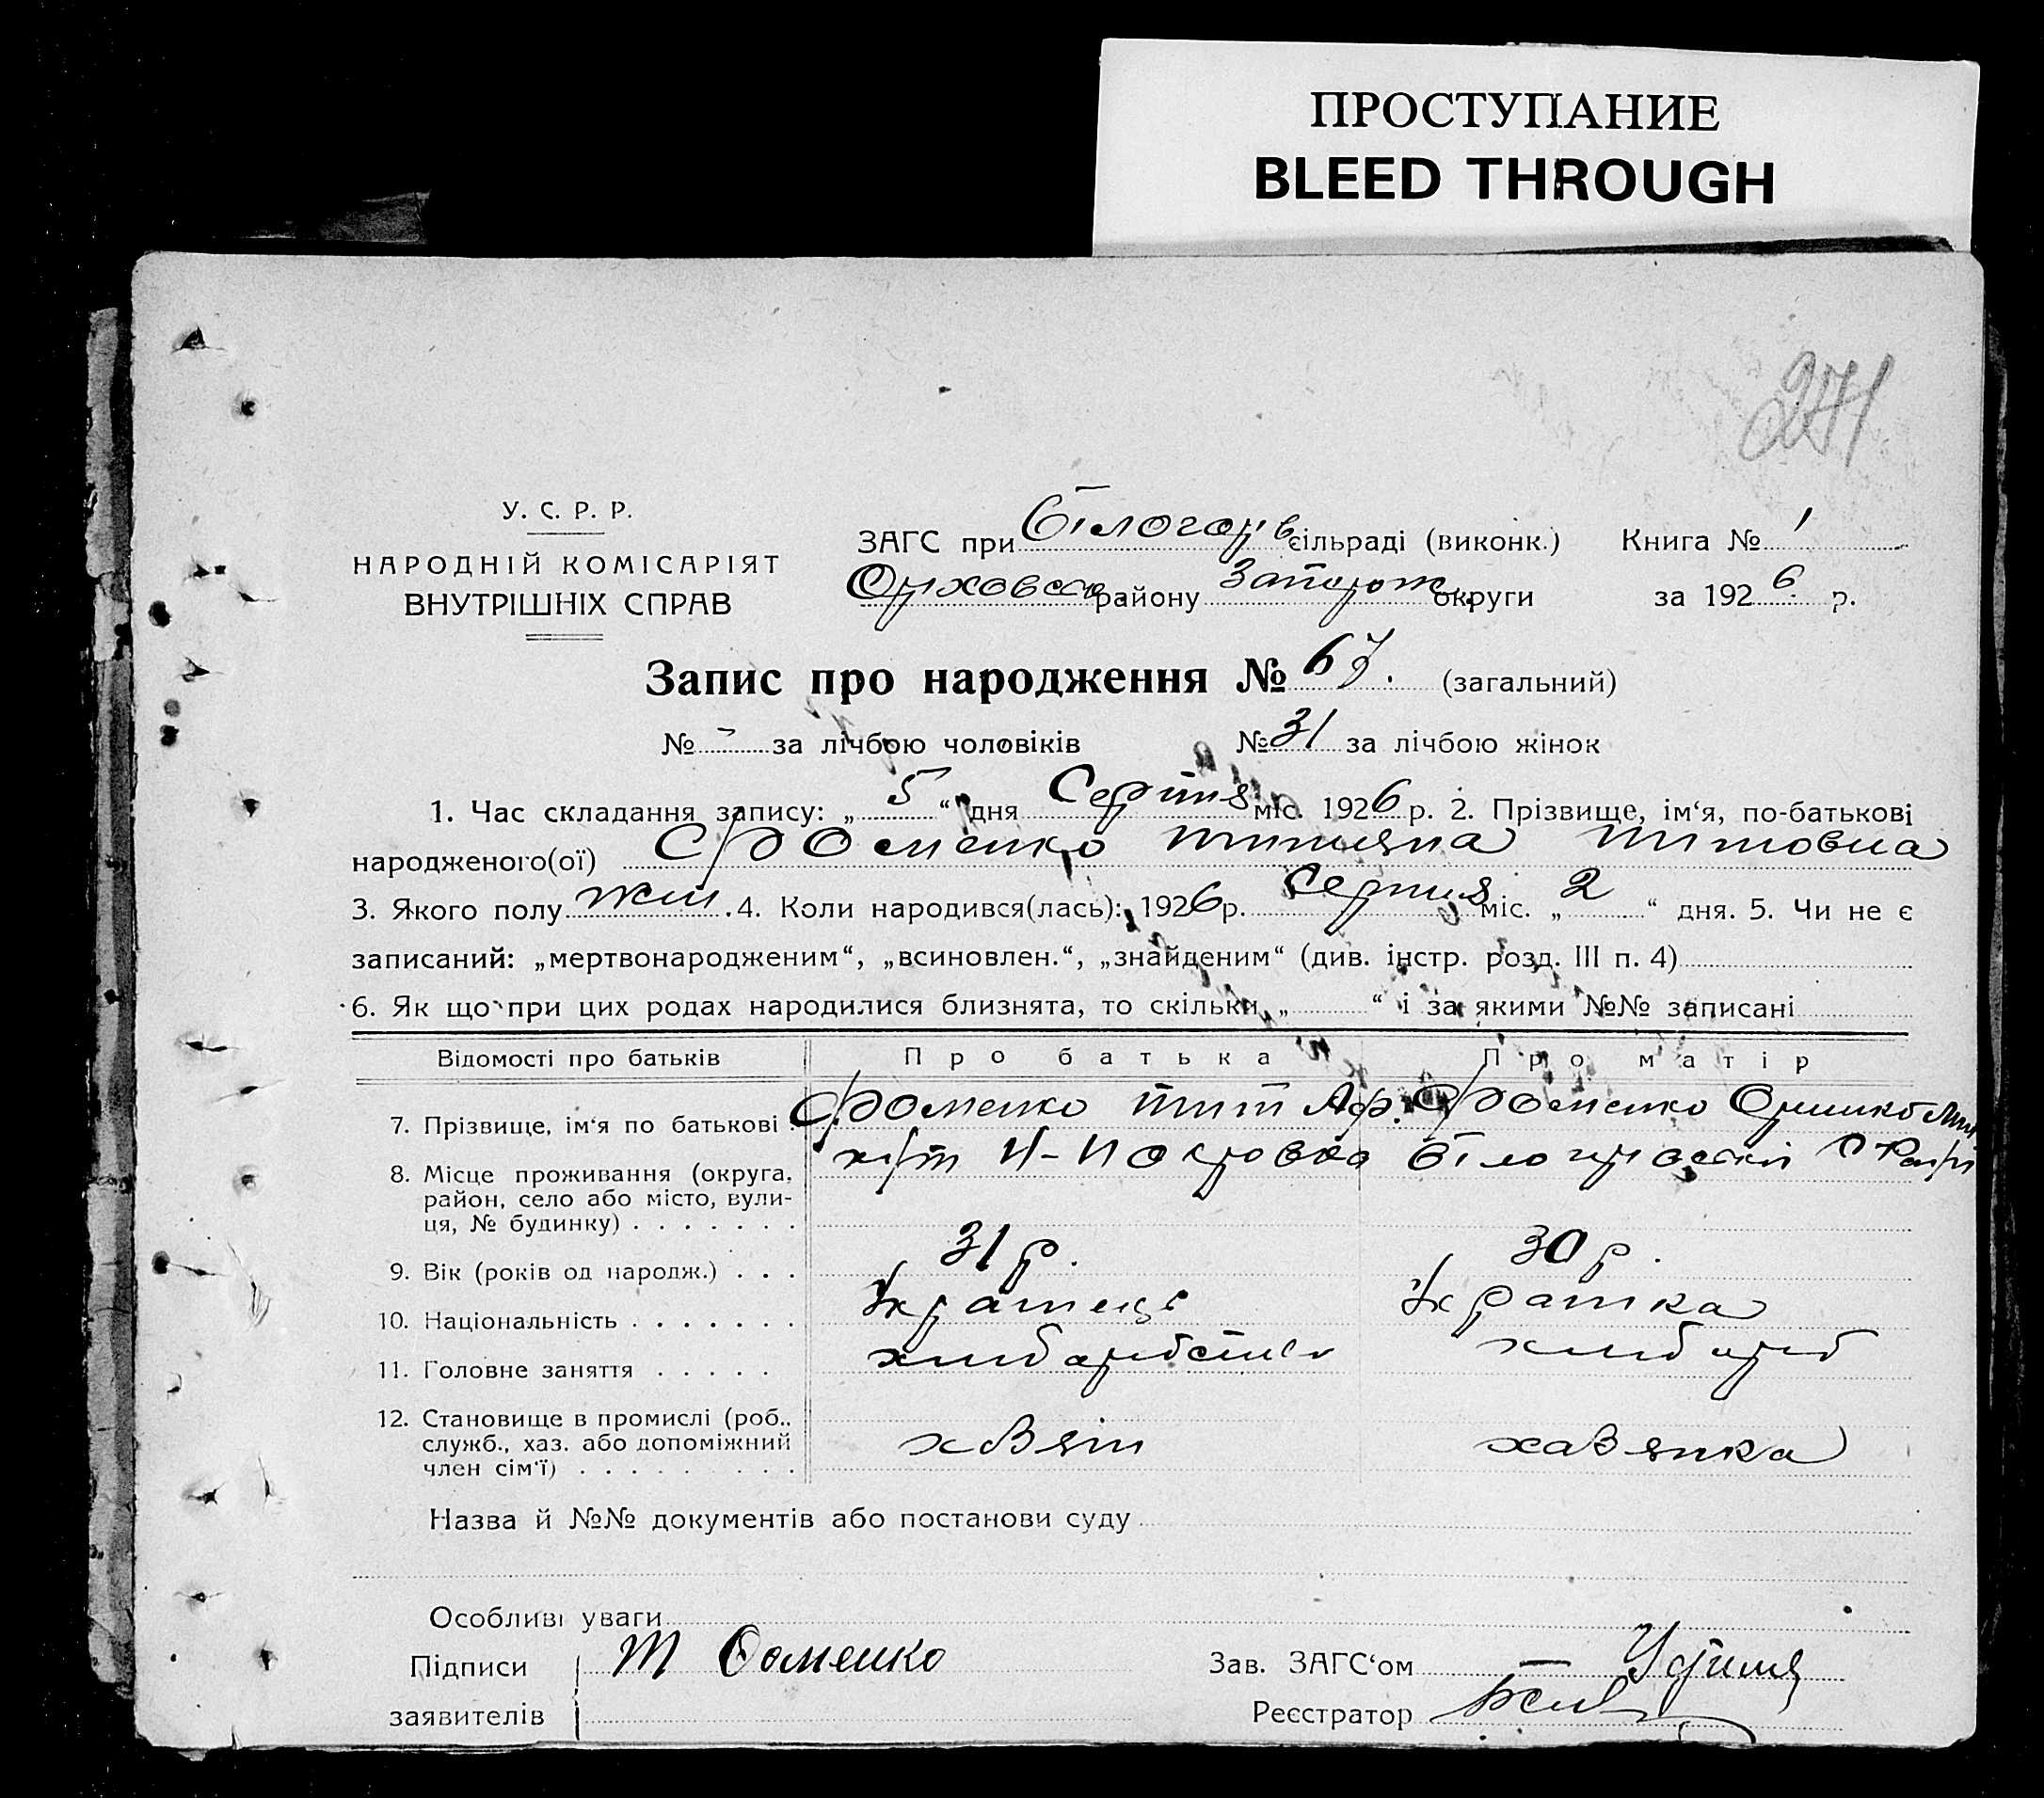 ПРОСТУПАНИЕ
BLEED THROUGH
У. С. Р. Р.
НАРОДНІЙ КОМІСАРІЯТ
ВНУТРІШНІХ СПРАВ
ЗАГС при Білогор в сільраді (виконк.) Книга № 1
району Запорож округи за 1926 р.
Запис про народження № 67. (загальний)
№ - за лічбою чоловіків № 31 за лічбою жінок
1. Час складання запису: „ 5 “ дня Серпня міс. 1926 р. 2. Прізвище, ім‘я, по-батькові
народженого(ої) Фоменко Титовна
3. Якого полу жін. 4. Коли народився(лась): 1926 р. Серпня міс. „ 2 “ дня. 5. Чи не є
записаний: „мертвонародженим“, „всиновлен.“, „знайденим“ (див. інстр. розд. III п. 4)
6. Як що при цих родах народилися близнята, то скільки „ “ і за якими №№ записані
Відомості про батьків Про батька Про матір
7. Прізвище, ім‘я по батькові . Фоменко Тит Аф. Фоменко
8. Місце проживання (округа, Н-Покровка
район, село або місто, вули-
ця, № будинку) . . . . . . .
9. Вік (років од народж.) . . . 31 р. 30 р.
10. Національність . . . . . . .
11. Головне заняття . . . . .
12. Становище в промислі (роб.,
служб., хаз. або допоміжний хазяїн хазяйка
член сім‘ї) . . . . . . . . .
Назва й №№ документів або постанови суду
Особливі уваги
Підписи Т Фоменко Зав. ЗАГС‘ом
заявителів Реєстратор